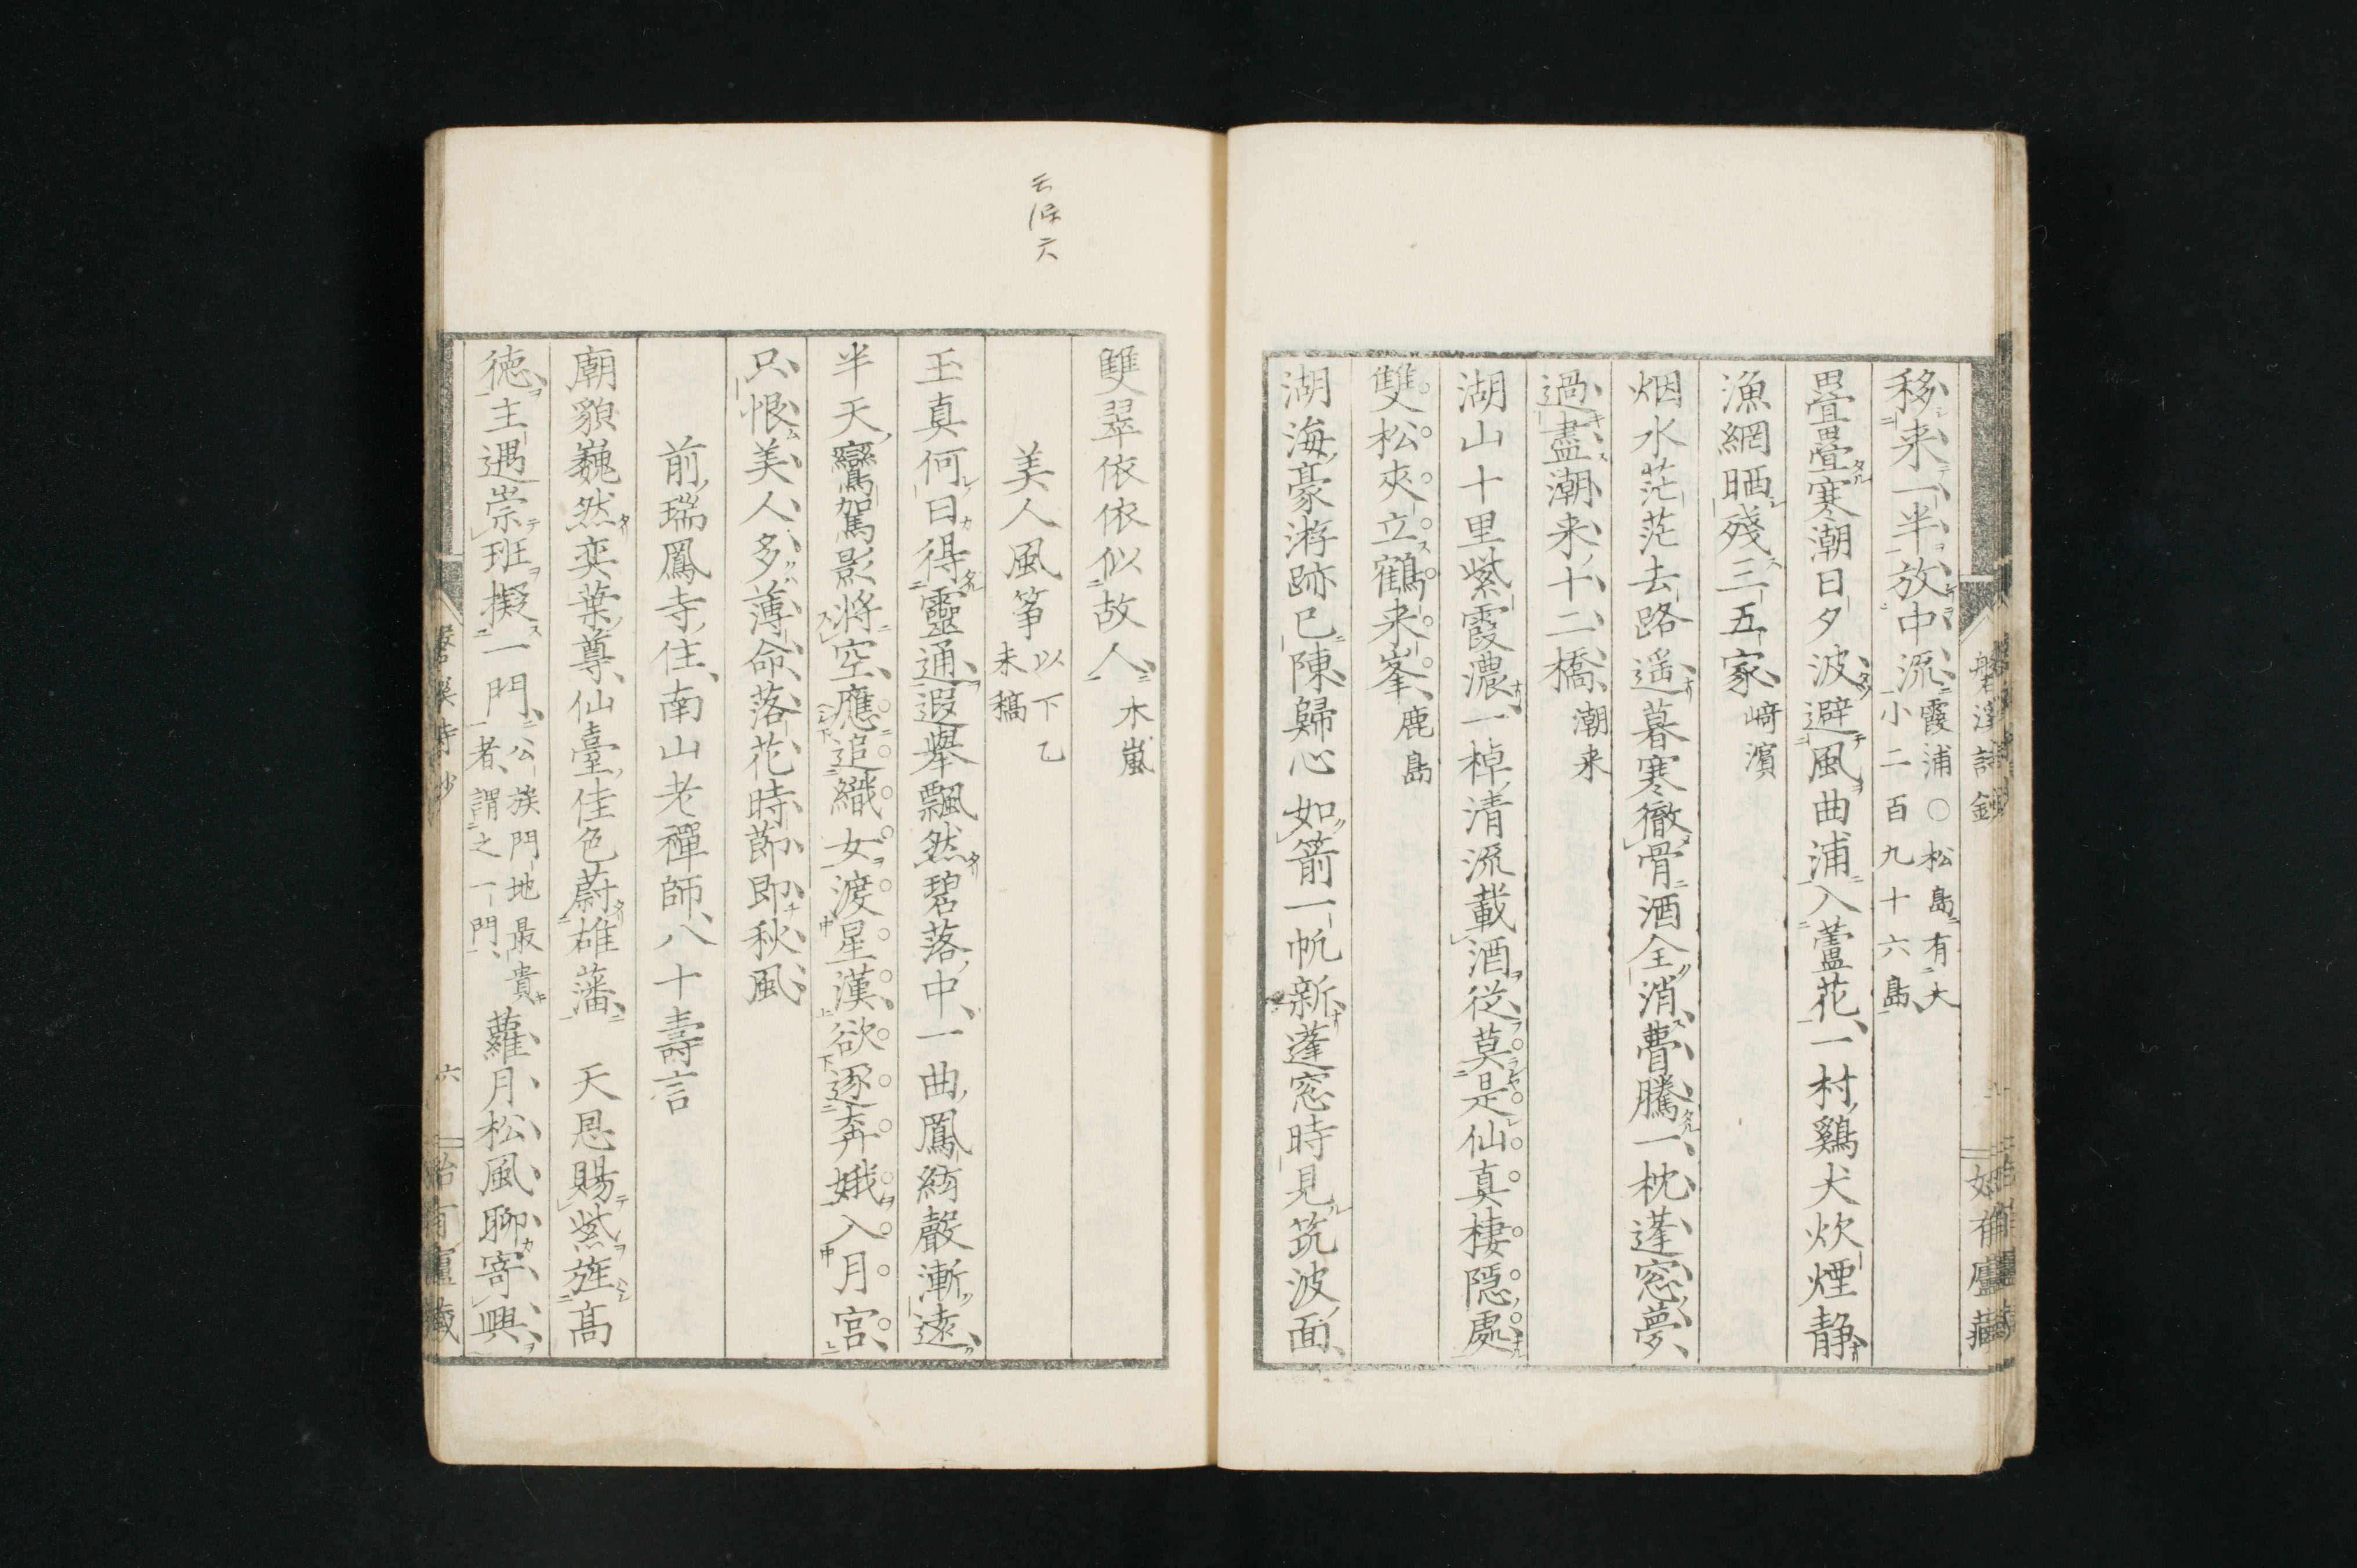 移来一半放中流 霞浦○松島有大
小二百九十六島
畳畳寒潮日夕波避風曲浦入蘆花一村鷄犬炊煙静
漁網晒殘三五家 﨑濱
烟水茫茫去路遥暮寒徹骨酒全消瞢騰一枕蓬窓夢
過盡潮来十二橋 潮来
湖山十里紫霞濃一棹清流載酒従莫是仙真棲隠處
雙松夾立鶴来峯 鹿島
湖海豪游跡已陳歸心如箭一帆新蓬窓時見筑波面
雙翠依依似故人 木嵐
美人風箏 以下乙
未稿
玉真何日得靈通遐舉飄然碧落中一曲鳳絃聲漸遠
半天鸞駕影将空應追織女渡星漢欲逐奔娥入月宮
只恨美人多薄命落花時節即秋風
前瑞鳳寺住南山老禪師八十壽言
廟貌巍然奕葉尊仙臺佳色蔚雄藩 天恩賜紫旌高
徳主遇崇班擬一門 公族門地最貴
者謂之一門 蘿月松風聊寄興
六